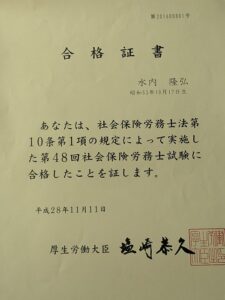 合格証書
水内 隆弘
あなたは、社会保険労務士法第
10条第1項の規定によって実施し
た第48回社会保険労務士試験に
合格したことを証します。
平成28年11月11日
厚生労働大臣 塩崎恭久